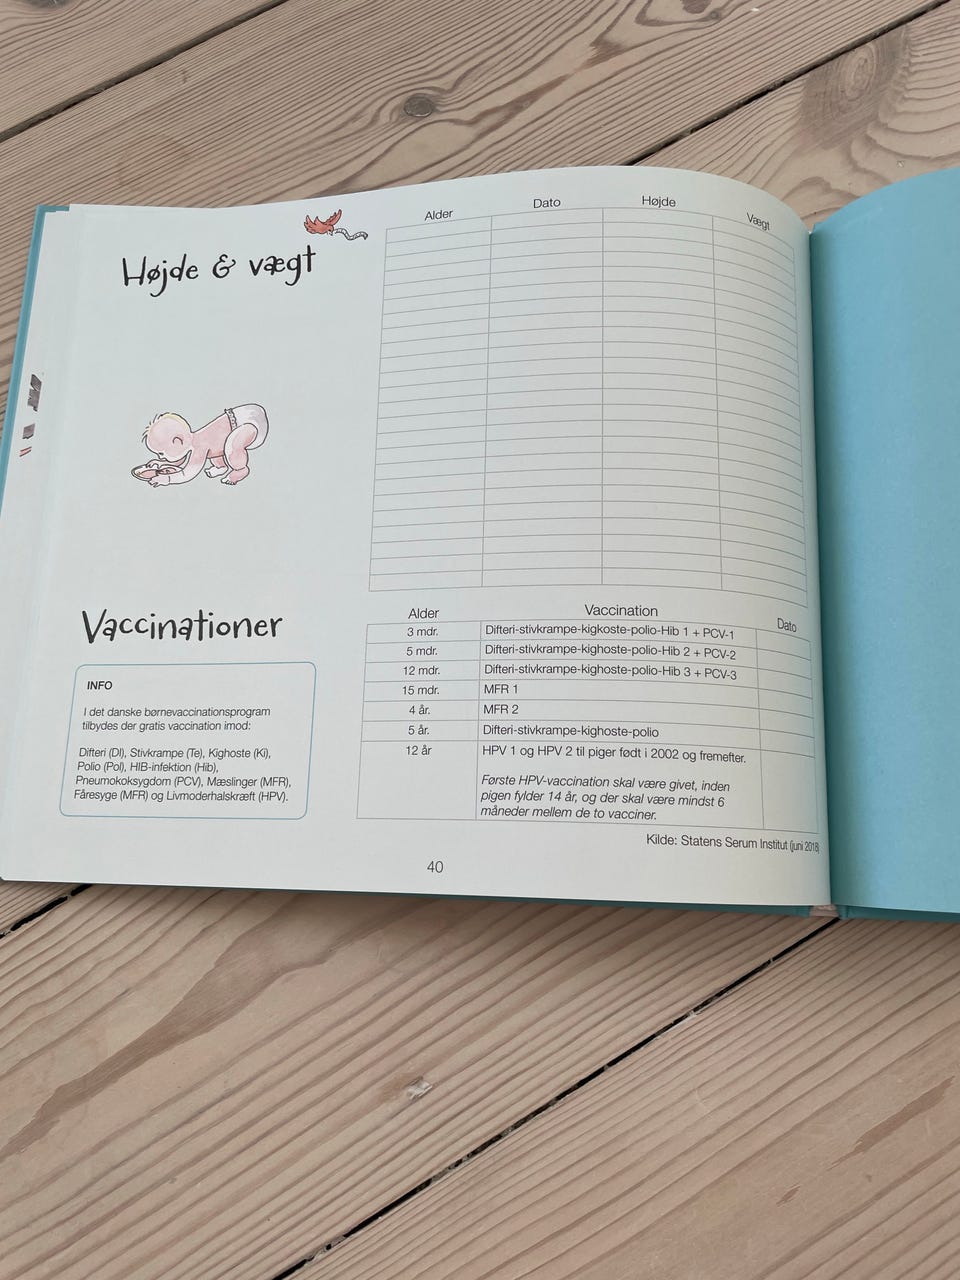 Højde & vægt
Alder Dato Højde Vægt
Vaccinationer
INFO
I det danske børnevaccinationsprogram
tilbydes der gratis vaccination imod:
Difteri (DI), Stivkrampe (Te), Kighoste (Ki),
Polio (Pol), HIB-infektion (Hib),
Pneumokoksygdom (PCV), Mæslinger (MFR),
Fåresyge (MFR) og Livmoderhalskræft (HPV).
Alder Vaccination Dato
3 mdr. Difteri-stivkrampe-kigkoste-polio-Hib 1 + PCV-1
5 mdr. Difteri-stivkrampe-kighoste-polio-Hib 2 + PCV-2
12 mdr. Difteri-stivkrampe-kighoste-polio-Hib 3 + PCV-3
15 mdr. MFR 1
4 år. MFR 2
5 år. Difteri-stivkrampe-kighoste-polio
12 år HPV 1 og HPV 2 til piger født i 2002 og fremefter.
Første HPV-vaccination skal være givet, inden
pigen fylder 14 år, og der skal være mindst 6
måneder mellem de to vacciner.
Kilde: Statens Serum Institut (juni 2018)
40